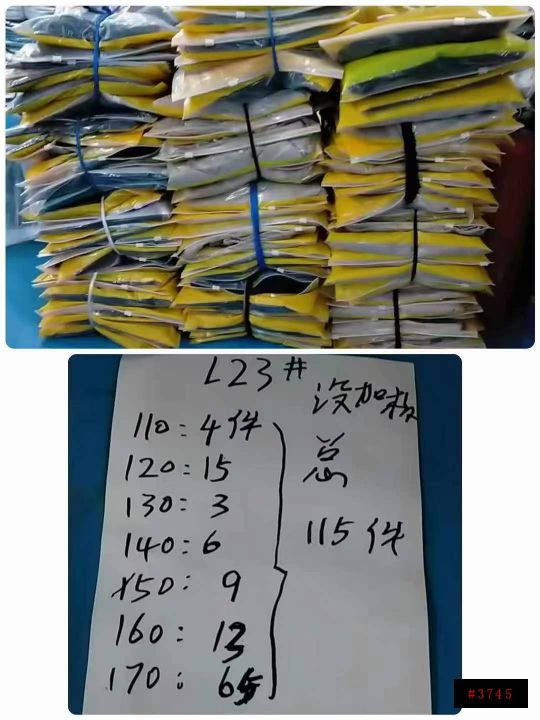 L23#
没加标
110:4件
120:15
130:3
140:6
150:9
160:13
170:65
总
115件
#3745